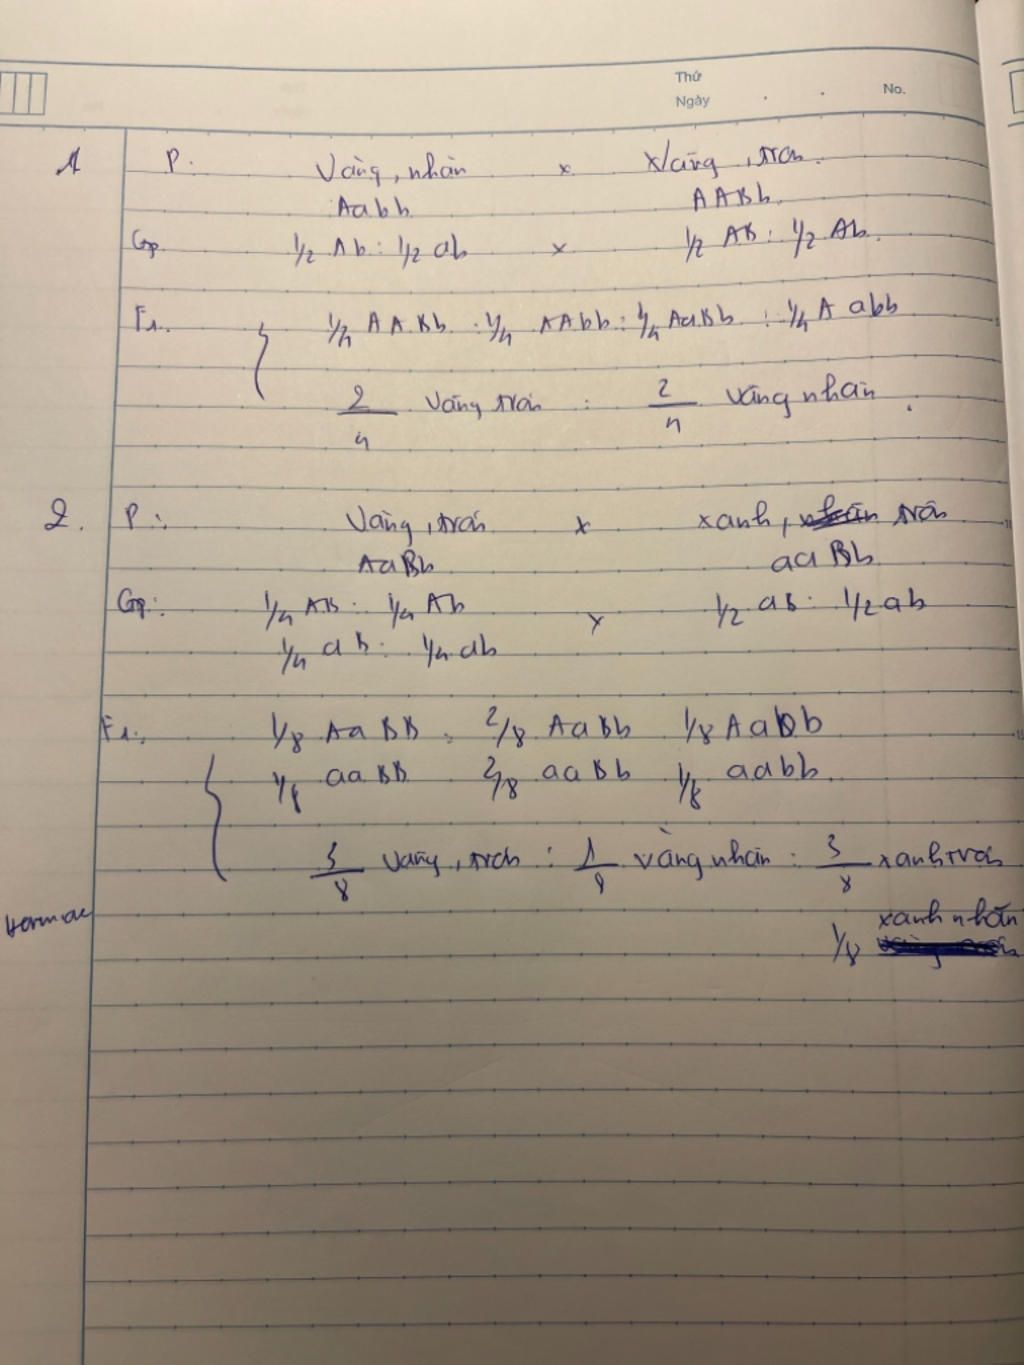 Thứ
Ngày . . No.
1 P: Vàng, nhăn x Vàng, trơn.
Aabb AABb.
Gp 1/2 Ab : 1/2 ab x 1/2 AB : 1/2 Ab.
F1: 1/4 AABb : 1/4 AAbb : 1/4 AaBb : 1/4 Aabb
2/4 Vàng trơn : 2/4 Vàng nhăn.
2. P: Vàng, trơn x xanh, trơn
AaBb aaBb
Gp: 1/4 AB : 1/4 Ab x 1/2 aB : 1/2 ab
1/4 aB : 1/4 ab
F1: 1/8 AaBB : 2/8 AaBb 1/8 Aabb
1/8 aaBB 2/8 aaBb 1/8 aabb
3/8 vàng, trơn : 1/8 vàng nhăn : 3/8 xanh trơn
xanh nhăn
1/8